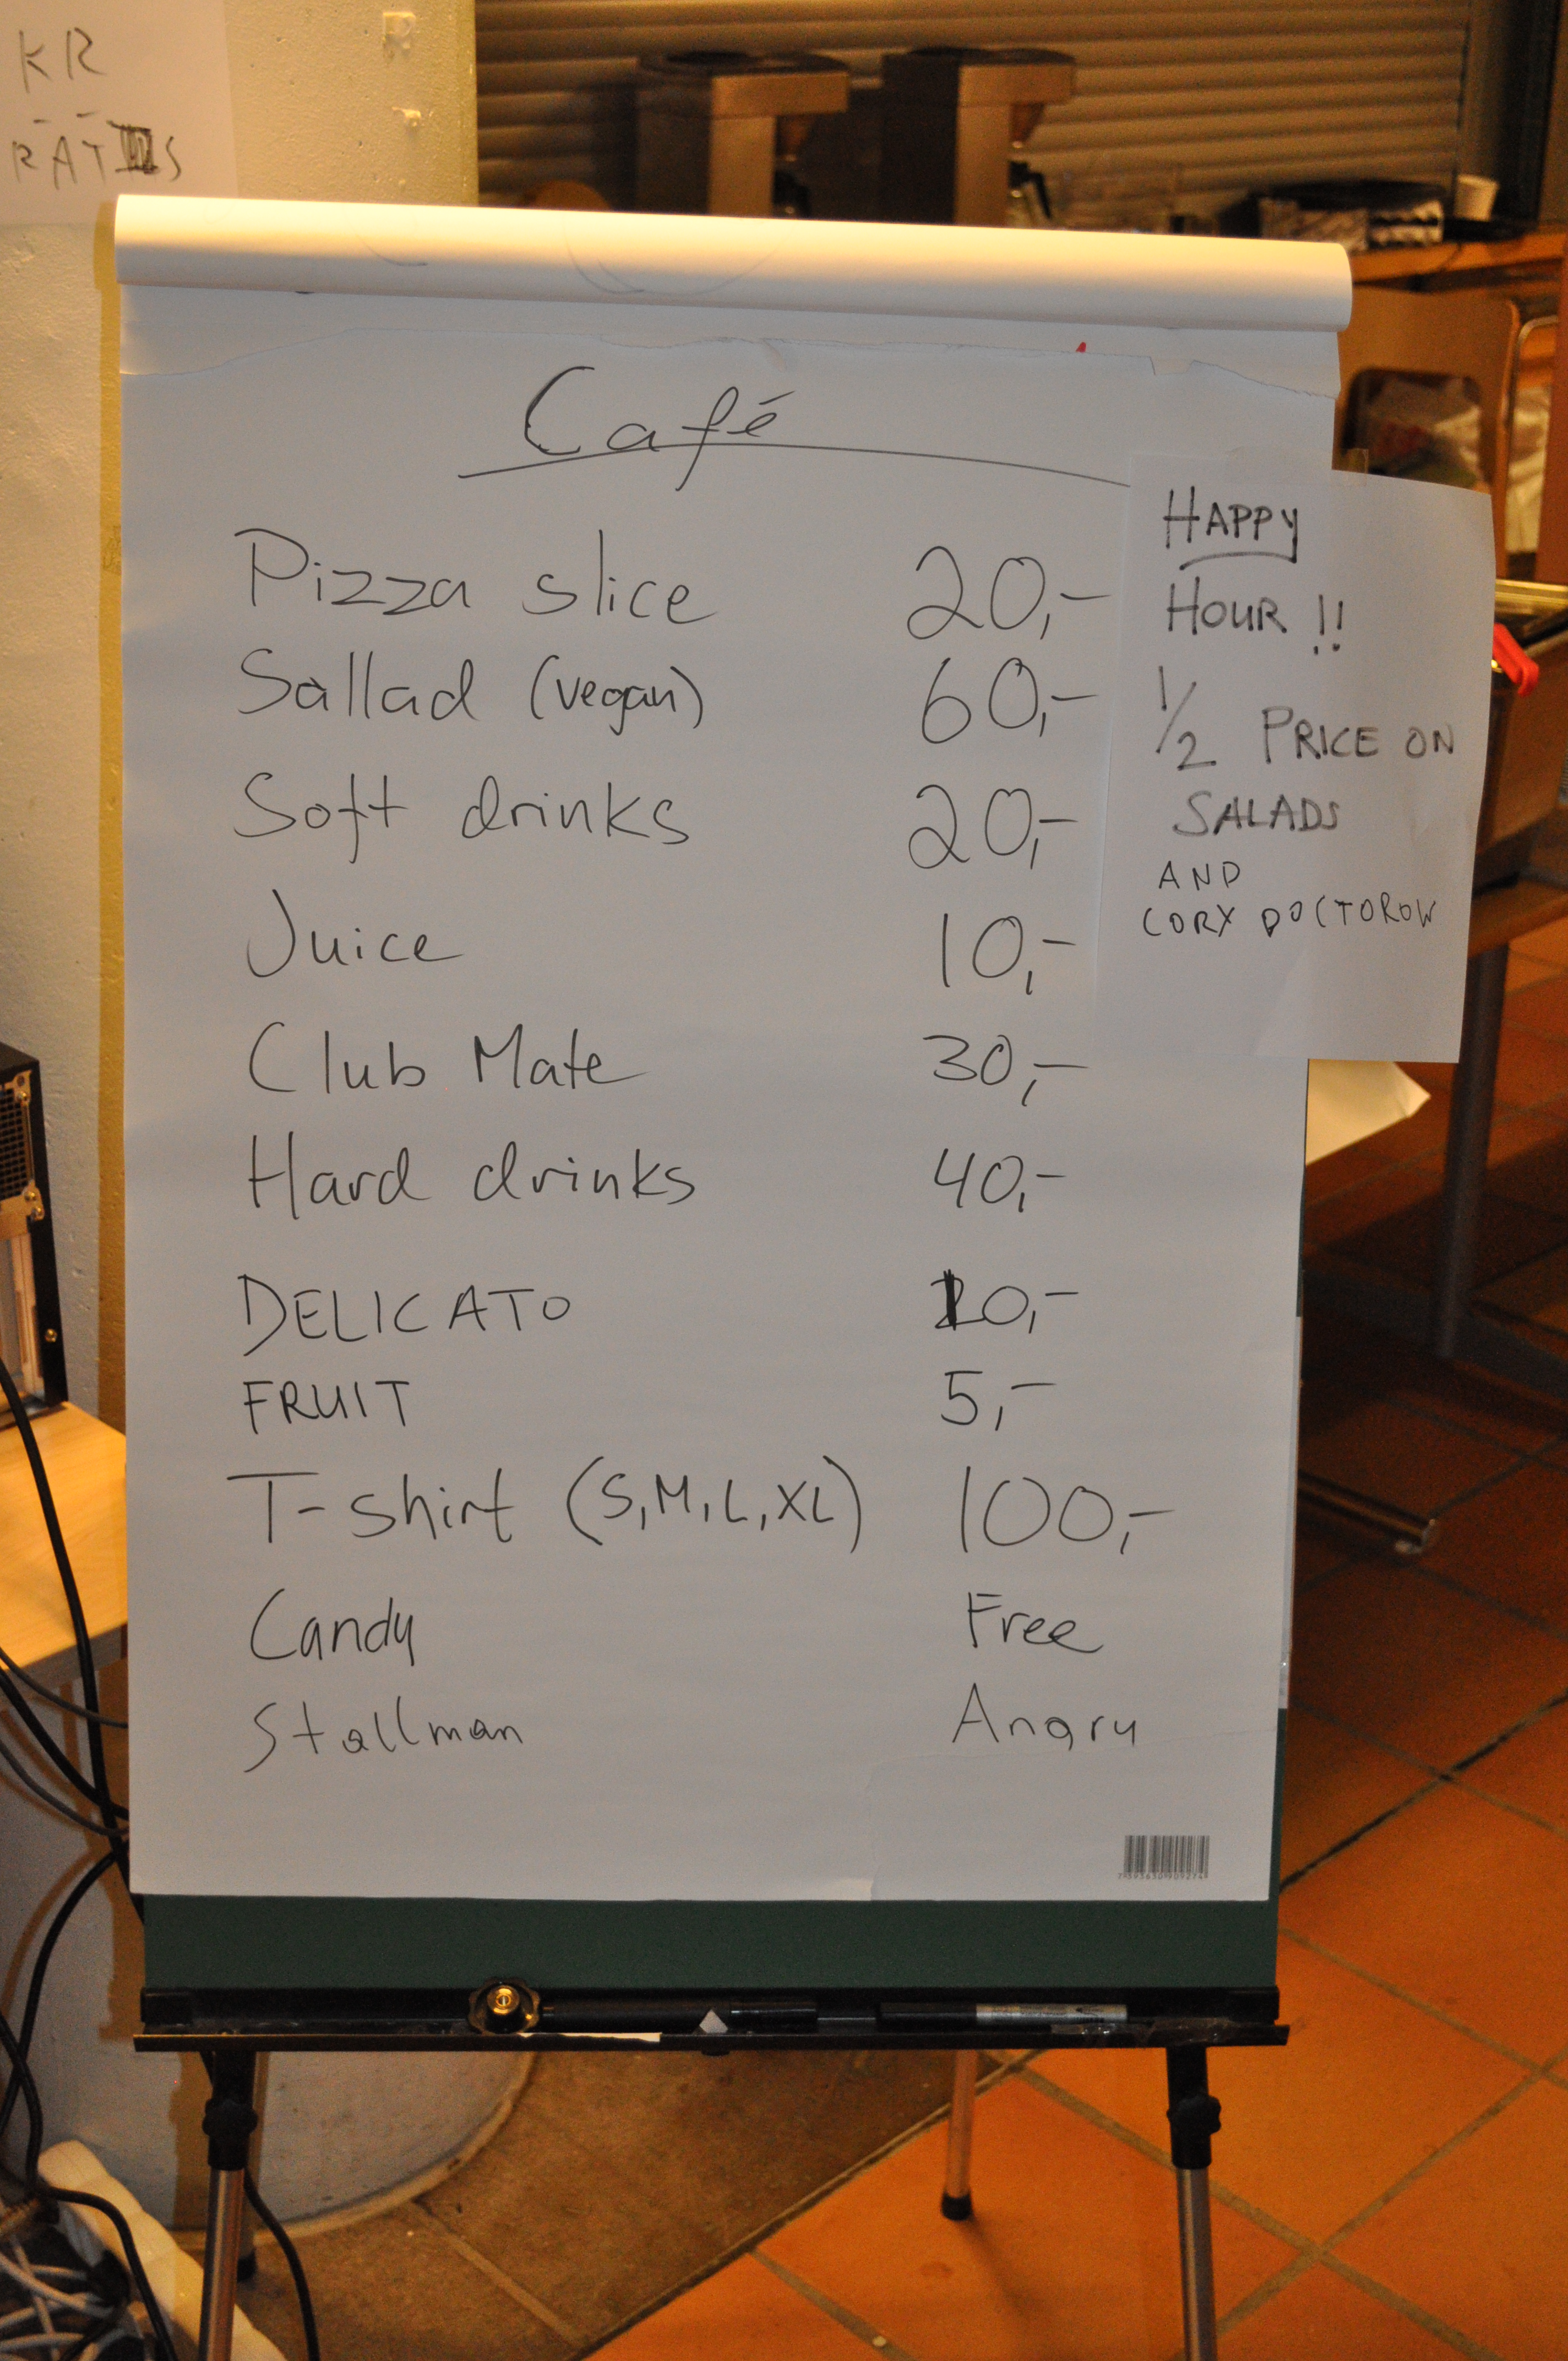 KR
RATIS
Café
Pizza slice 20,-
Sallad (vegan) 60,-
Soft drinks 20,-
Juice 10,-
Club Mate 30,-
Hard drinks 40,-
DELICATO 10,-
FRUIT 5,-
T-shirt (S,M,L,XL) 100,-
Candy Free
Stallman Angry
HAPPY
HOUR !!
1/2 PRICE ON
SALADS
AND
CORY DOCTOROW